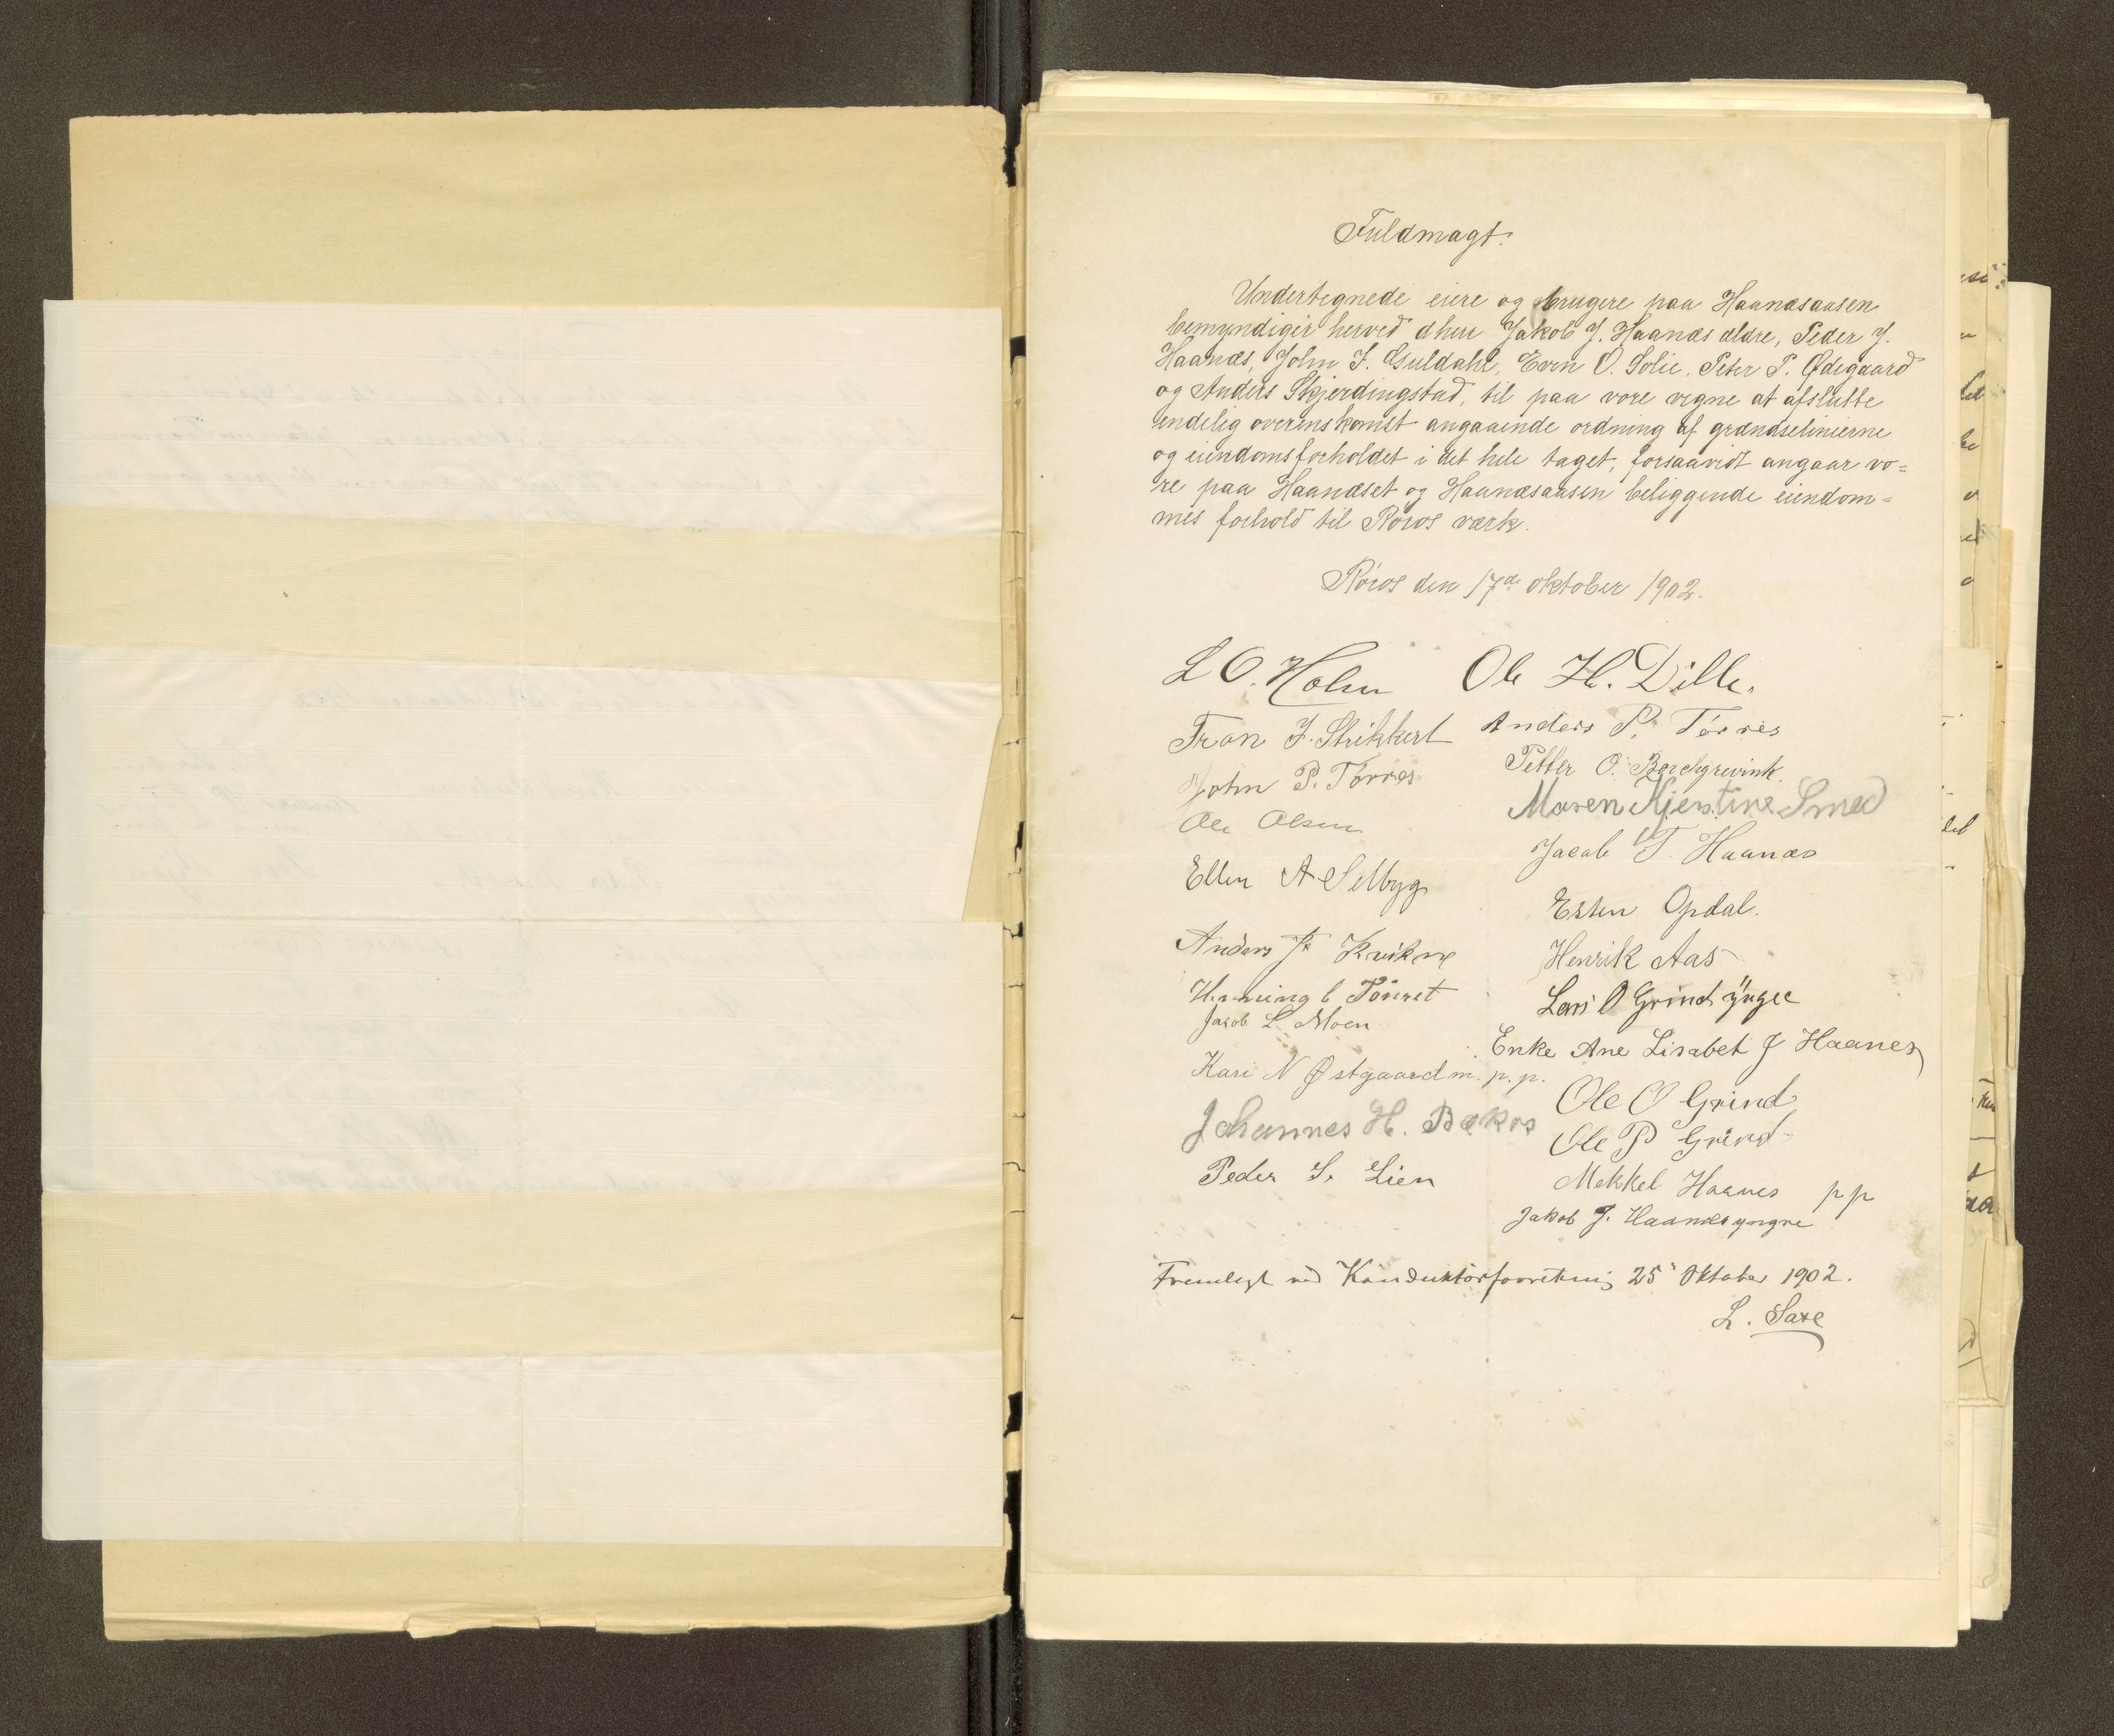 Fuldmagt.
Undertegnede eiere og brugere paa Haanæsaasen
bemyndiger herved dherr Jakob J. Haanæs ældre, Peder J.
Haanæs, John J. Guldahl, Even O. Solie, Peter P. Ødegaard
og Anders Skjerdingstad, til paa vore vegne at afslutte
endelig overenskomst angaaende ordning af grændselinierne
og eiendomsforholdet i det hele taget, forsaavidt angaar vo=
re paa Haanæset og Haanæsaasen beliggende eiendom=
mes forhold til Røros værk.
Røros den 17de oktober 1902.
L O. Holm Ole H. Dille.
Tron J. Strikkert Anders P. Tørres
John P. Tørres Petter O. Borchgrevink.
Ole Olsen Maren Kjerstine Smed
Jacob T. Haanæs
Ellen A Selbyg
Esten Opdal.
Anders Kvikne Henrik Aas
Henning Tønset Lars O Grind yngre
Jacob L Moen
Enke Ane Lisabet J Haanes
Kari N Østgaard m. p. p.
Ole O Grind
Johannes H. Bækos
Ole P Grind
Peder S. Lien Mekkel Haanes p p
Jakob J. Haanæs yngre
Fremlagt ved Konduktørforretning 25' Oktober 1902.
L. Saxe